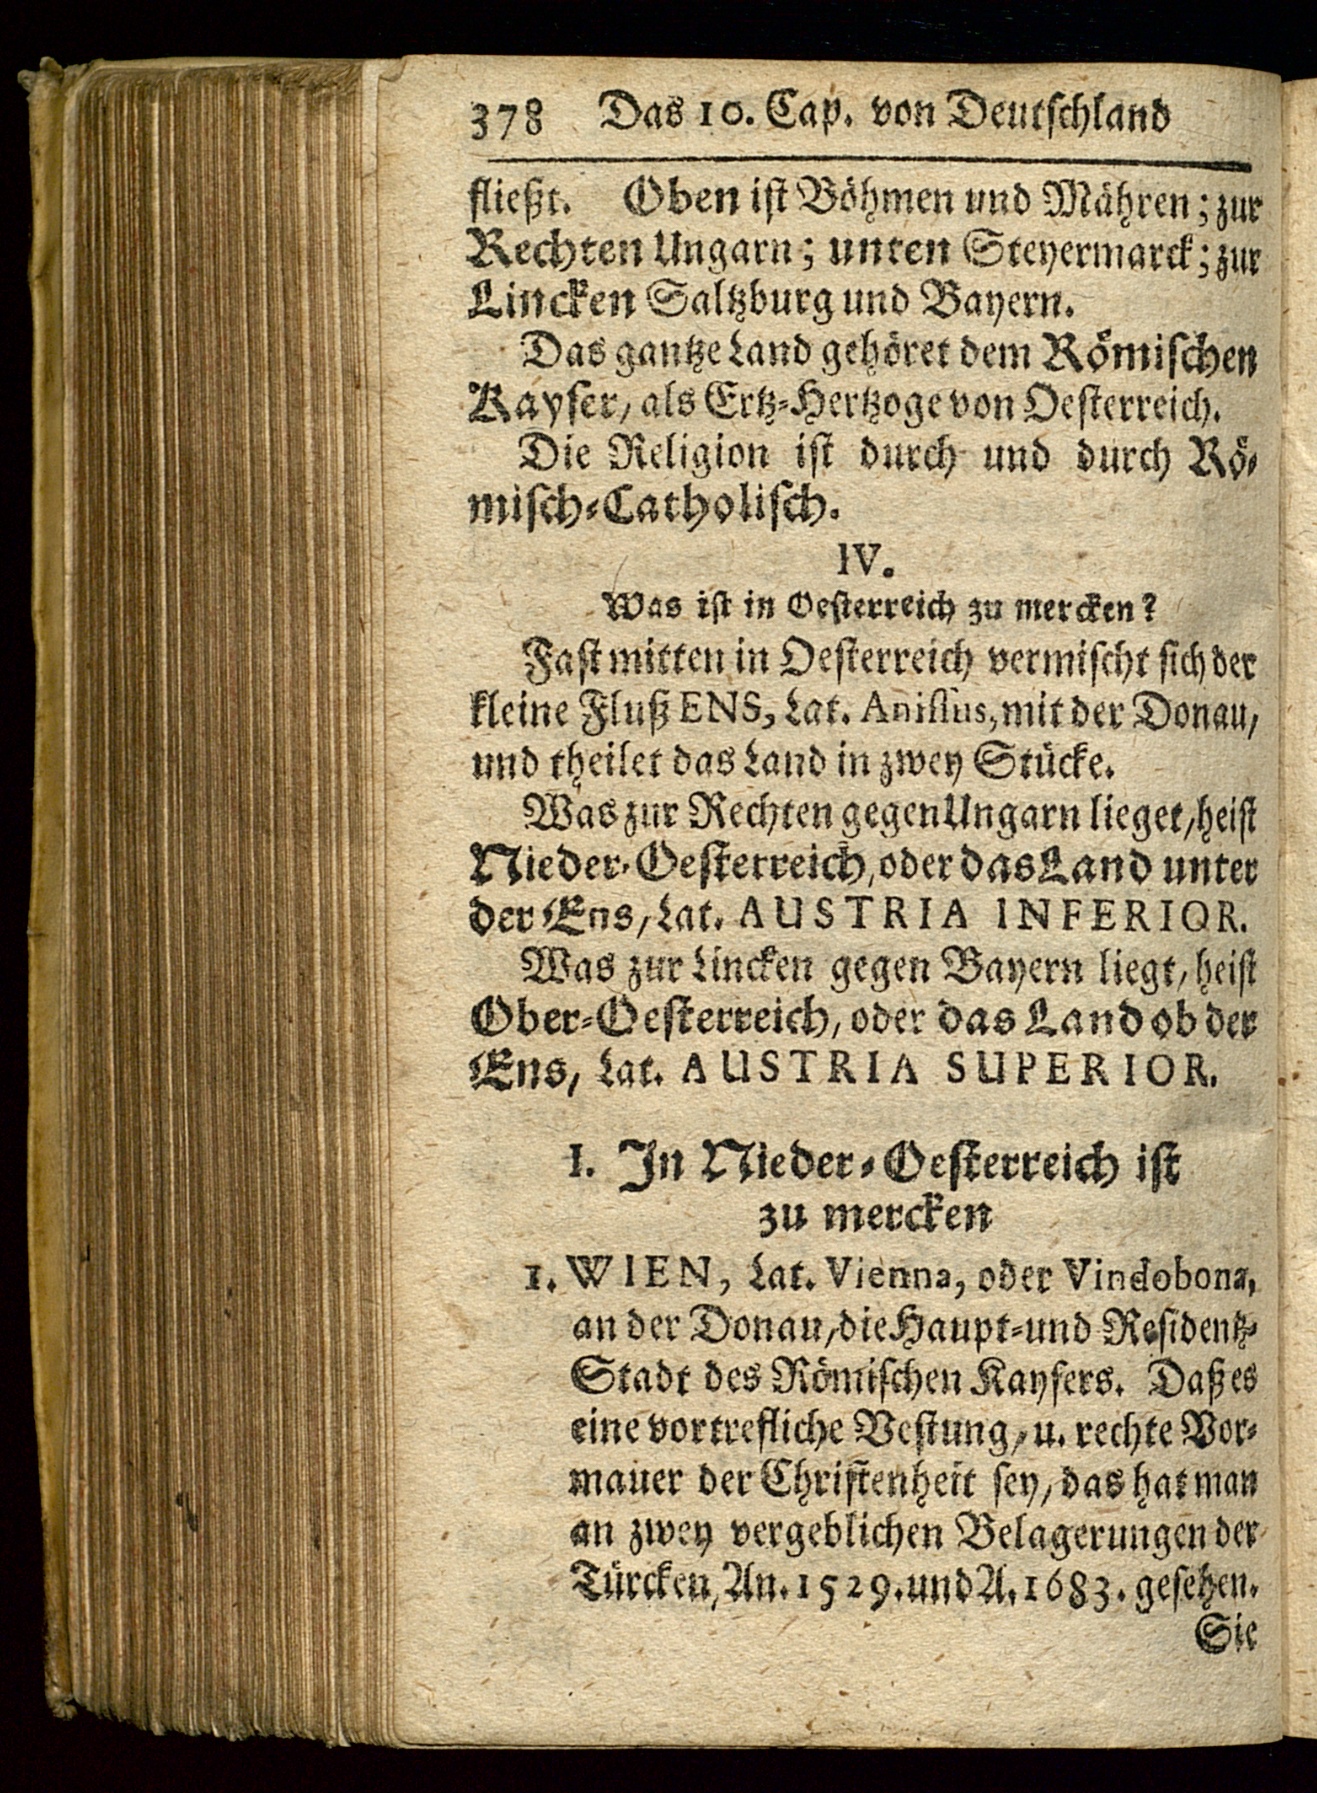 378 Das 10. Cap. von Deutschland
fließt. Oben ist Böhmen und Mähren; zur
Rechten Ungarn; unten Steyermarck; zur
Lincken Saltzburg und Bayern.
Das gantze Land gehöret dem Römischen
Kayser, als Ertz-Hertzoge von Oesterreich.
Die Religion ist durch und durch Rö-
misch-Catholisch.
IV.
Was ist in Oesterreich zu mercken?
Fast mitten in Oesterreich vermischt sich der
kleine Fluß ENS, Lat. Anisius, mit der Donau,
und theilet das Land in zwey Stücke.
Was zur Rechten gegen Ungarn lieget, heist
Nieder-Oesterreich, oder das Land unter
der Ens, Lat. AUSTRIA INFERIOR.
Was zur Lincken gegen Bayern liegt, heist
Ober-Oesterreich, oder das Land ob der
Ens, Lat. AUSTRIA SUPERIOR.
I. In Nieder-Oesterreich ist
zu mercken
1. WIEN, Lat. Vienna, oder Vindobona,
an der Donau, die Haupt-und Residentz-
Stadt des Römischen Kaysers. Daß es
eine vortrefliche Vestung, u. rechte Vor-
mauer der Christenheit sey, das hat man
an zwey vergeblichen Belagerungen der
Türcken, An. 1529. und A. 1683. gesehen.
Sie